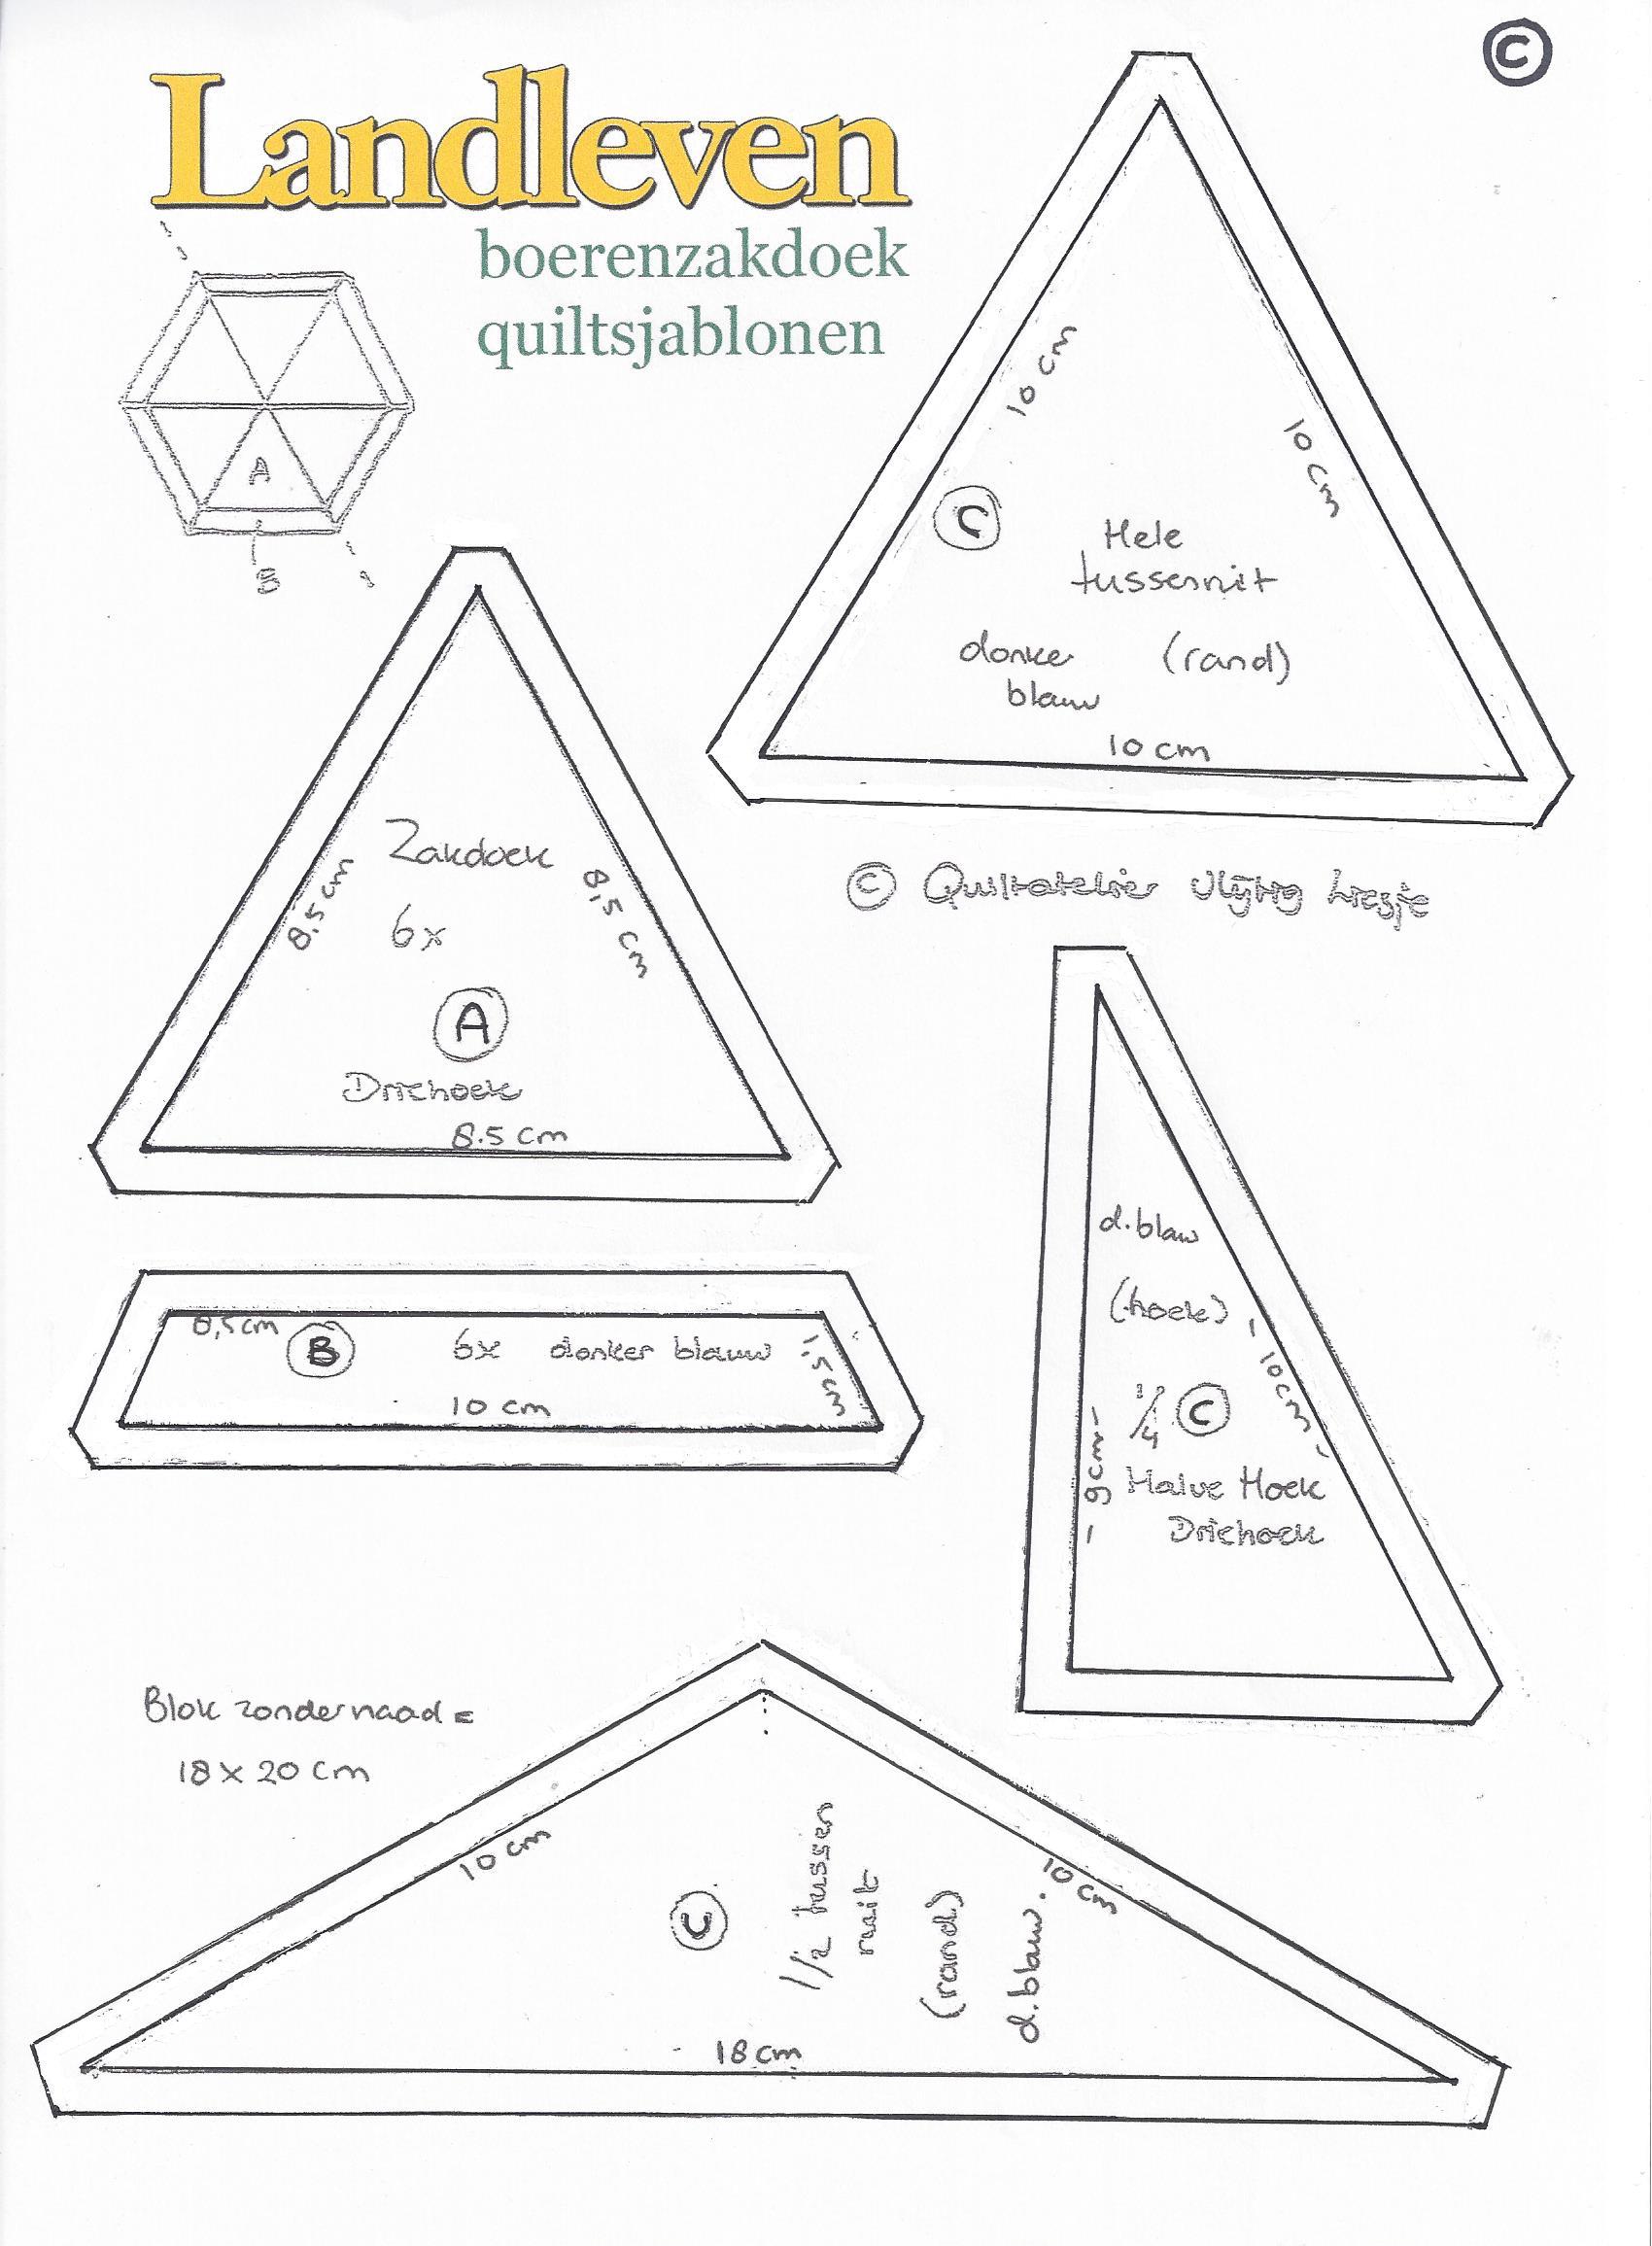 ©
Landleven
boerenzakdoek
quiltsjablonen
A
B
10 cm
10 cm
C
Hele
tussenruit
donker
blauw
(rand)
10 cm
Zakdoek
6x
8,5 cm
8,5 cm
A
Driehoek
8.5 cm
© Quiltatelier Vlijtig Liesje
8,5 cm
B
6x donker blauw
1,5 cm
10 cm
d.blauw
(hoek)
- 10cm -
1/4 C
- 9cm -
Halve Hoek
Driehoek
Blok zonder naad =
18 x 20 cm
10 cm
10 cm
C
1/2 tussen
ruit
(rand)
d.blauw.
18 cm